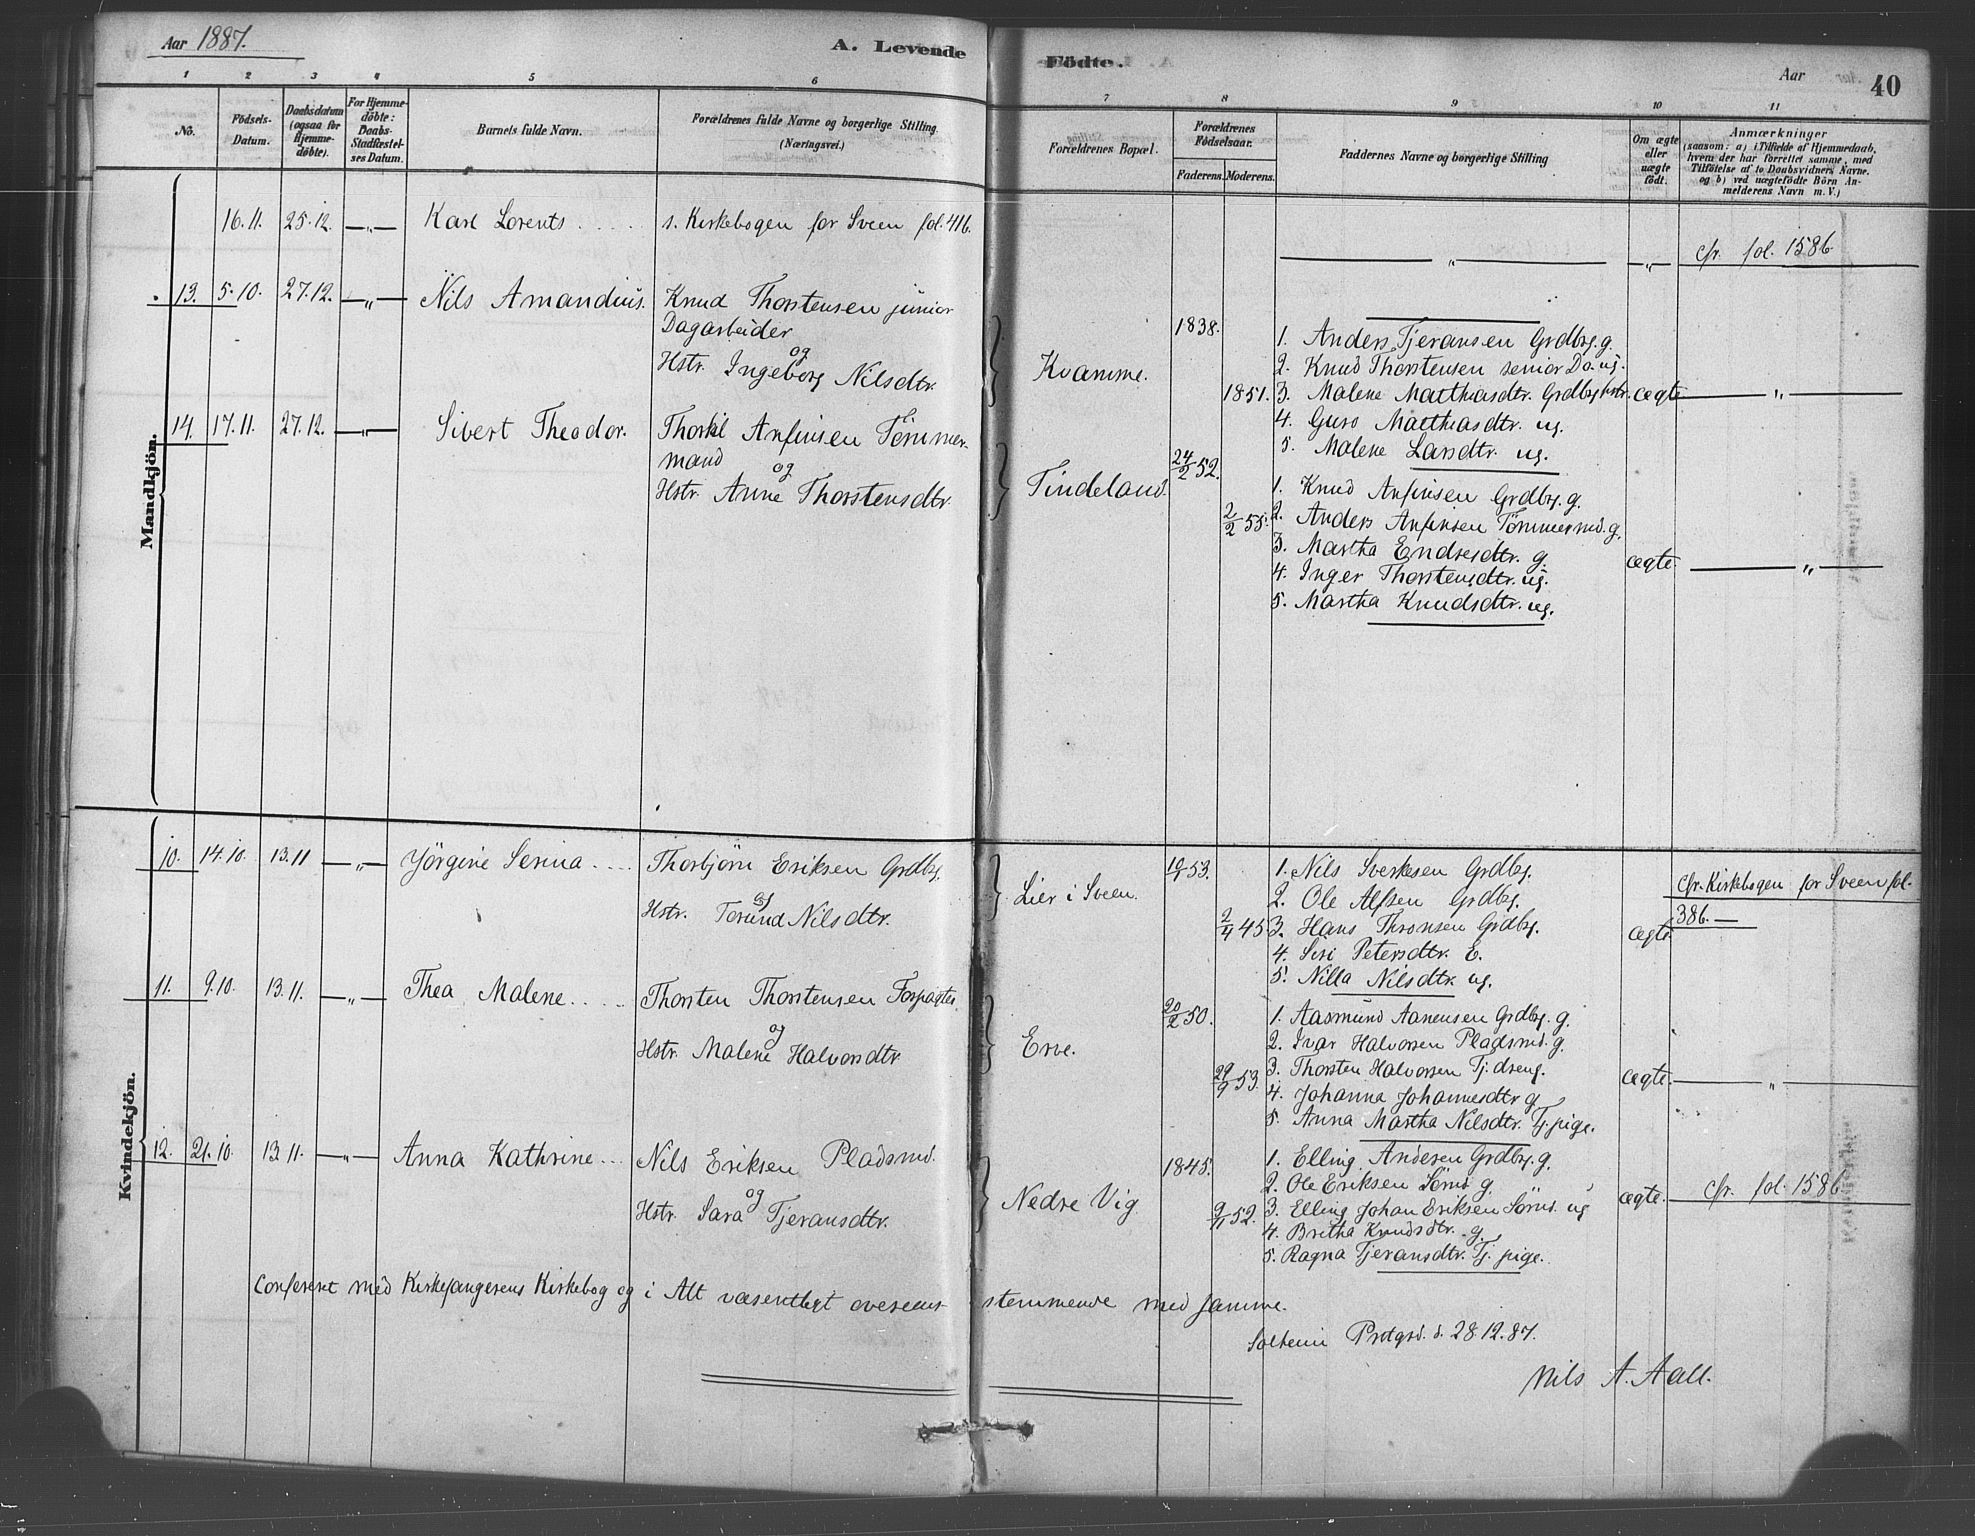 Aar 1887.
A. Levende
Födte.
Aar
40
1 2 3 4 5 6 7 8 9 10 11
No.
Födsels-
Datum.
Daabsdatum
(ogsaa for
Hjemme-
döbte).
For Hjemme-
döbte:
Daabs-
Stadfæstel-
ses Datum.
Barnets fulde Navn.
Forældrenes fulde Navne og borgerlige Stilling
(Næringsvei.)
Forældrenes Bopæl.
Forældrenes
Födselsaar.
Faderens. Moderens.
Faddernes Navne og borgerlige Stilling
Om ægte
eller
uægte
födt.
Anmærkninger
(saasom: a) i Tilfælde af Hjemmedaab,
hvem der har forrettet samme, med
Tilföielse af to Daabsvidners Navne.
og b) ved uægtefödte Börn An-
melderens Navn m. V.)
Mandkjön.
16.11. 25.12. —"— Karl Lorents .... s. Kirkebogen for Sveen fol. 416.
—"— —"— cfr. fol. 1586
13. 5.10. 27.12. —"— Nils Amandius. Knud Thorstensen junior
Dagarbeider
og
Hstr. Ingeborg Nilsdtr.
Kvamme.
1838.
1851.
1. Anders Tjeransen Grdbrg. g.
2. Knud Thorstensen senior Do. ug.
3. Malene Matthiasdtr. Grdbrg. hstr. ægte —"—
4. Guro Matthiasdtr. ug.
5. Malene Larsdtr. ug.
14. 17.11. 27.12. —"— Sivert Theodor. Thorkil Anfinsen Tømmer-
mand
og
Hstr. Anne Thorstensdtr.
Tindeland.
24/2 52.
2/2 55.
1. Knud Anfinsen Grdbr. g.
2. Anders Anfinsen Tømmermd. g.
3. Martha Endresdtr. g. ægte. —"—
4. Inger Thorstensdtr. ug.
5. Martha Knudsdtr. ug.
Kvindekjön.
10. 14.10. 13.11 —"— Jörgine Serina .... Thorbjörn Eriksen Grdbr.
og
Hstr. Torund Nilsdtr.
Lier i Sveen.
53.
2/4 45
1. Nils Sverkesen Grdbr.
2. Ole Alfsen Grdbr.
3. Hans Thronsen Grdbr.
4. Siri Petersdtr. E.
5. Nilla Nilsdtr. ug.
ægte.
cfr. Kirkebogen for Sveen fol.
386.—
11. 9.10. 13.11. —"— Thea Malene .... Thorsten Thorstensen Forpagter
og
Hstr. Malene Halvorsdtr.
Erve.
20/2 50.
29/9 53.
1. Aasmund Aanensen Grdbr. g.
2. Ivar Halvorsen Pladsmd. g.
3. Thorsten Halvorsen Tj. dreng. ægte. —"—
4. Johanna Johannesdtr g
5. Anna Martha Nilsdtr. Tj. pige.
12. 21.10. 13.11. —"— Anna Kathrine ... Nils Eriksen Pladsmd.
og
Hstr. Sara Tjeransdtr.
Nedre Vig.
1845.
9/1 52.
1. Elling Andersen Grdbr. g.
2. Ole Eriksen Sømd. g.
3. Elling Johan Eriksen Sømd. ug ægte. cfr. fol. 1586
4. Bretha Knudsdtr. g.
5. Ragna Tjeransdtr. Tj. pige.
Confereret med Kirkesangerens Kirkebog og i Alt væsentligt overens- stemmende med samme.
Solheim Prstgrd. d. 28.12.87.
Nils A. Aall.